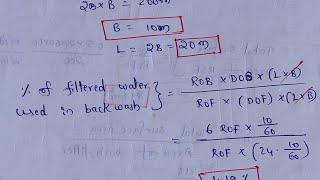 2B×B = 200m
B = 10m
L = 2B = 20m
% of filtered water used in backwash } = ROB × DOB × (L×B) / ROF × (DOF) × (L×B)
= 6 ROF × 10/60 / ROF × (24 - 10/60)